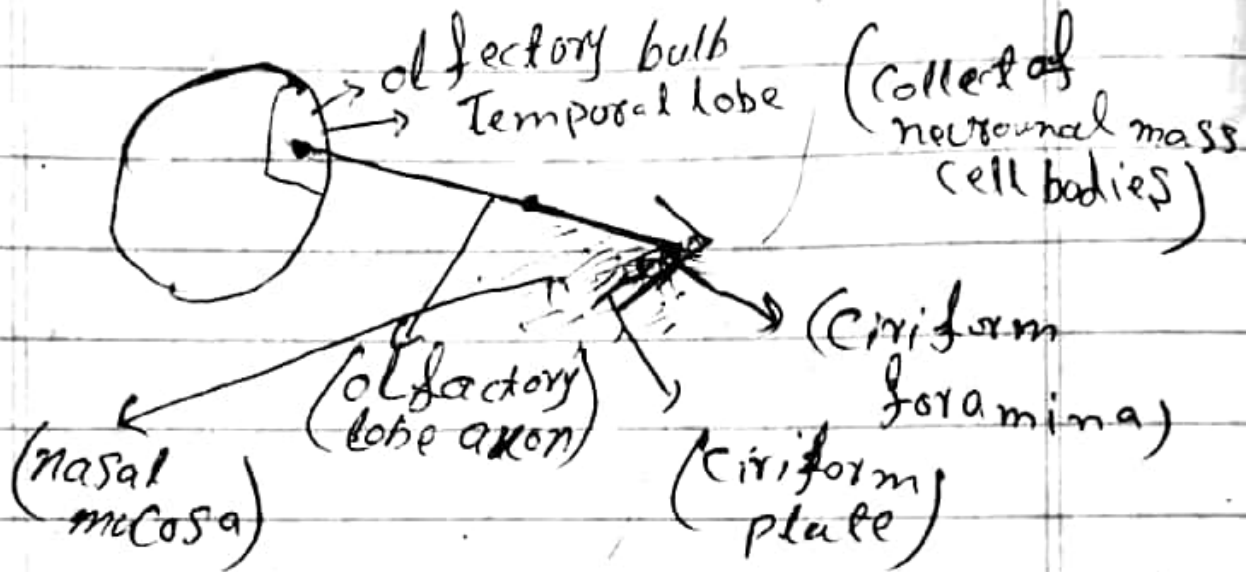 olfectory bulb
Temporal lobe
(Collect of
neurounal mass
cell bodies)
(Ciriform
foramina)
(olfactory
lobe axon)
(nasal
mucosa)
(Ciriform
plate)